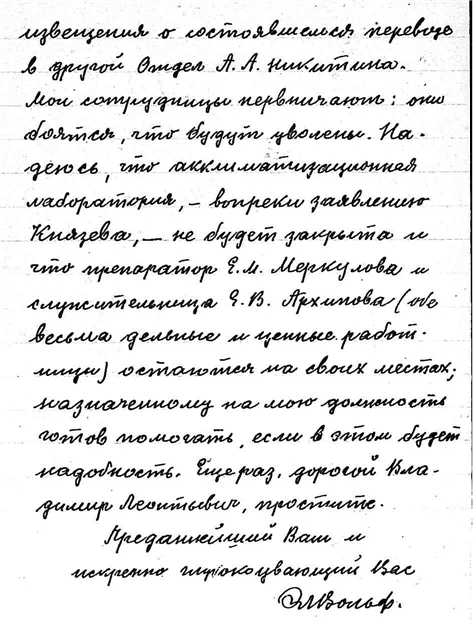 извещения о состоявшемся переводе
в другой Отдел А. А. Никитина.
Мои сотрудницы нервничают: они
боятся, что будут уволены. На-
деюсь, что акклиматизационная
лаборатория, – вопреки заявлению
Князева, – не будет закрыта и
что препаратор Е. М. Меркулова и
служительница Е. В. Архипова (обе
весьма дельные и ценные работ-
ницы) остаются на своих местах;
назначенному на мою должность
готов помогать, если в этом будет
надобность. Еще раз, дорогой Вла-
димир Леонтьевич, простите.
Преданнейший Вам и
искренно глубокоуважающий Вас
ЭМВольф.